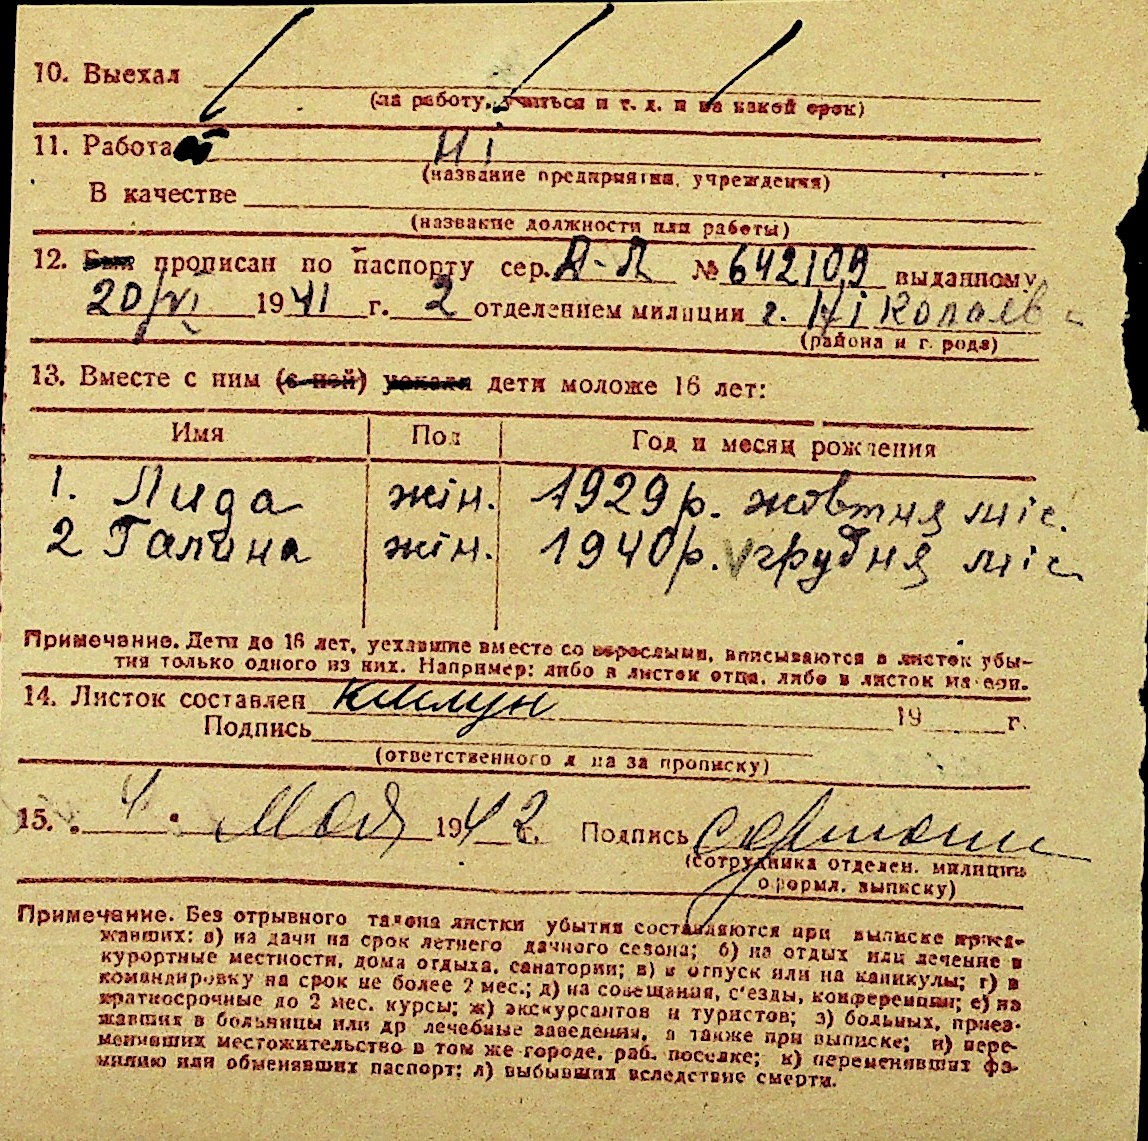 10. Выехал
(на работу, учиться и т. д. и на какой срок)
11. Работа ні
(название предприятия, учреждения)
В качестве
(название должности или работы)
12. Был прописан по паспорту сер. А-Л № 642109 выданному
20/VI 1941 г. 2 отделением милиции г. Ніколаев
(района и г. рода)
13. Вместе с ним (с ней) уехали дети моложе 16 лет:
Имя Пол Год и месяц рождения
1. Лида жін. 1929 р. жовтня міс.
2 Галина жін. 1940 р. грудня міс
Примечание. Дети до 16 лет, уехавшие вместе со взрослыми, вписываются в листок убы-
тия только одного из них. Например: либо в листок отца, либо в листок матери.
14. Листок составлен 19 г.
Подпись
(ответственного л на за прописку)
15. 4 Мая 1942 г. Подпись
(сотрудника отделен. милиции
оформл. выписку)
Примечание. Без отрывного талона листки убытия составляются при выписке приез-
жавших: а) на дачи на срок летнего дачного сезона; б) на отдых или лечение в
курортные местности, дома отдыха, санатории; в) в отпуск или на каникулы; г) в
командировку на срок не более 2 мес.; д) на совещания, с'езды, конференции; е) на
краткосрочные до 2 мес. курсы; ж) экскурсантов и туристов; з) больных, приез-
жавших в больницы или др лечебные заведения, а также при выписке; и) пере-
менивших местожительство в том же городе, раб. поселке; к) переменивших фа-
милию или обменявших паспорт; л) выбывших вследствие смерти.